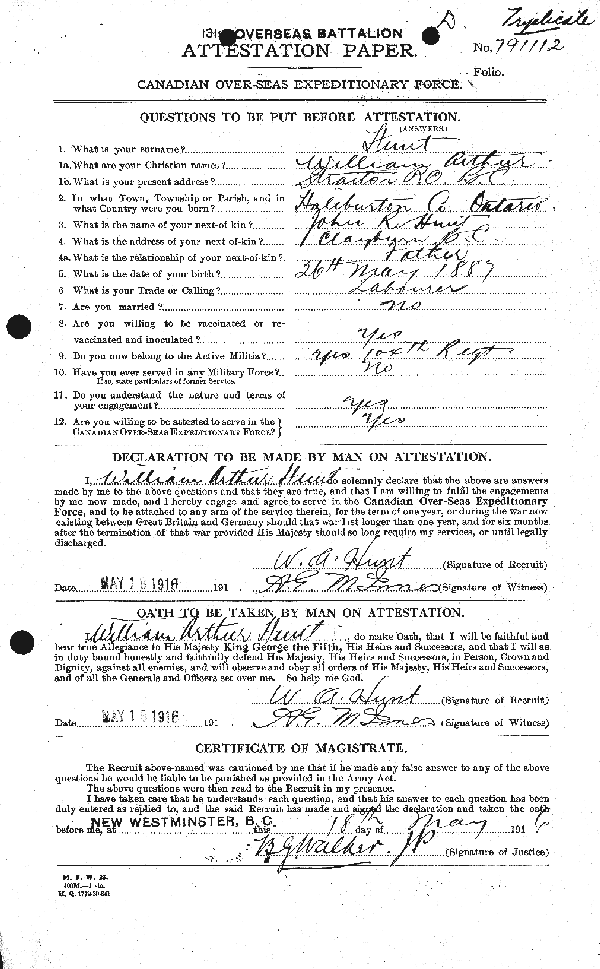 Triplicate
131 OVERSEAS BATTALION
ATTESTATION PAPER.
No. 791112
Folio.
CANADIAN OVER-SEAS EXPEDITIONARY FORCE.
QUESTIONS TO BE PUT BEFORE ATTESTATION.
(ANSWERS)
1. What is your surname? Hunt
1a. What are your Christian names? William Arthur
1b. What is your present address? Straiton P.O. B.C.
2. In what Town, Township or Parish, and in
what Country were you born? Haliburton Co Ontario.
3. What is the name of your next-of kin? John R. Hunt
4. What is the address of your next-of-kin? Clayburn B.C.
4a. What is the relationship of your next-of-kin? Father
5. What is the date of your birth? 26th May 1889
6. What is your Trade or Calling? Labourer
7. Are you married? No
8. Are you willing to be vaccinated or re-
vaccinated and inoculated? Yes
9. Do you now belong to the Active Militia? yes 104th Regt
10. Have you ever served in any Military Force? No
If so, state particulars of former Service.
11. Do you understand the nature and terms of
your engagement? Yes
12. Are you willing to be attested to serve in the
CANADIAN OVER-SEAS EXPEDITIONARY FORCE? Yes
DECLARATION TO BE MADE BY MAN ON ATTESTATION.
I, William Arthur Hunt do solemnly declare that the above are answers
made by me to the above questions and that they are true, and that I am willing to fulfil the engagements
by me now made, and I hereby engage and agree to serve in the Canadian Over-Seas Expeditionary
Force, and to be attached to any arm of the service therein, for the term of one year, or during the war now
existing between Great Britain and Germany should that war last longer than one year, and for six months
after the termination of that war provided His Majesty should so long require my services, or until legally
discharged.
W. A. Hunt (Signature of Recruit)
Date MAY 18 1916 191 (Signature of Witness)
OATH TO BE TAKEN BY MAN ON ATTESTATION.
I, William Arthur Hunt, do make Oath, that I will be faithful and
bear true Allegiance to His Majesty King George the Fifth, His Heirs and Successors, and that I will as
in duty bound honestly and faithfully defend His Majesty, His Heirs and Successors, in Person, Crown and
Dignity, against all enemies, and will observe and obey all orders of His Majesty, His Heirs and Successors,
and of all the Generals and Officers set over me. So help me God.
W. A. Hunt (Signature of Recruit)
Date MAY 18 1916 191 (Signature of Witness)
CERTIFICATE OF MAGISTRATE.
The Recruit above-named was cautioned by me that if he made any false answer to any of the above
questions he would be liable to be punished as provided in the Army Act.
The above questions were then read to the Recruit in my presence.
I have taken care that he understands each question, and that his answer to each question has been
duly entered as replied to, and the said Recruit has made and signed the declaration and taken the oath
before me, at NEW WESTMINSTER, B.C. this 18th day of May 1916
B G Walker JP (Signature of Justice)
M. F. W. 23.